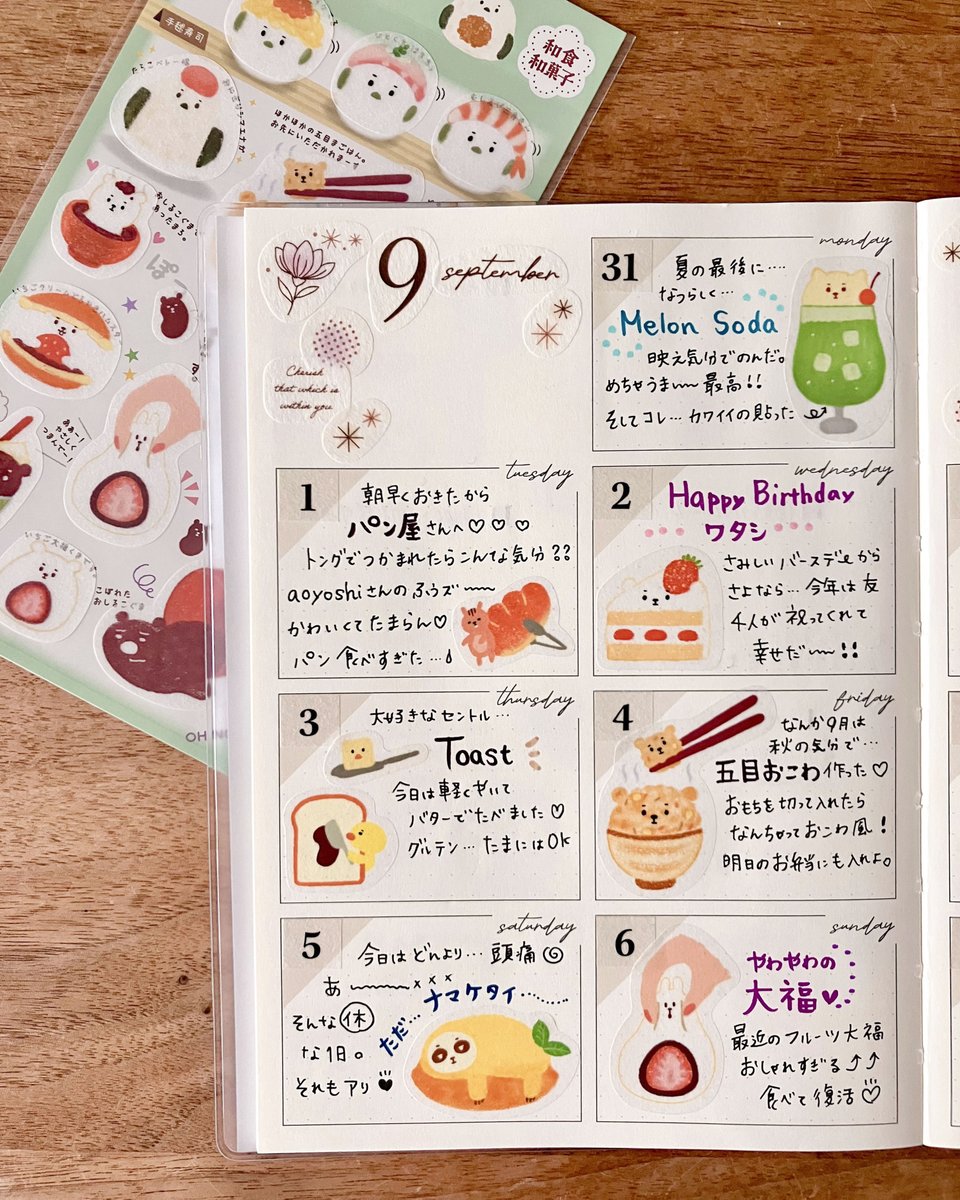 手毬寿司
和食
和菓子
ほかほかの五目まごはん。
お先にいただかれまーす
おしるこぐまで
あったまろ。
ぽ
ああー!
やさしく
つまんでー!
いちご大福くまです。
こぼれた
おしるこぐま
9 september
Cherish
that which is
within you
monday
31
夏の最後に‥‥
なつらしく…
Melon Soda
映え気分でのんだ。
めちゃうま〜〜 最高!!
そしてコレ… カワイイの貼った
tuesday
1
朝早くおきたから
パン屋さんへ♡♡♡
トングでつかまれたらこんな気分??
aoyoshiさんのふうズ〜〜
かわいくてたまらん♡
パン食べすぎた…
wednesday
2
Happy Birthday
ワタシ
さみしいバースデーから
さよなら… 今年は友
4人が祝ってくれて
幸せだ〜〜!!
thursday
3
大好きなセントル…
Toast
今日は軽くやいて
バターでたべました♡
グルテン… たまにはOk
friday
4
なんか9月は
秋の気分で…
五目おこわ作った♡
おもちを切って入れたら
なんちゃっておこわ風!
明日のお弁当にも入れよ。
saturday
5
今日はどんより… 頭痛
あ〜〜〜×××
ただ…ナマケタイ………
そんな休
な1日。
それもアリ♥
sunday
6
やわやわの
大福♥
最近のフルーツ大福
おしゃれすぎる⤴⤴
食べて復活♡